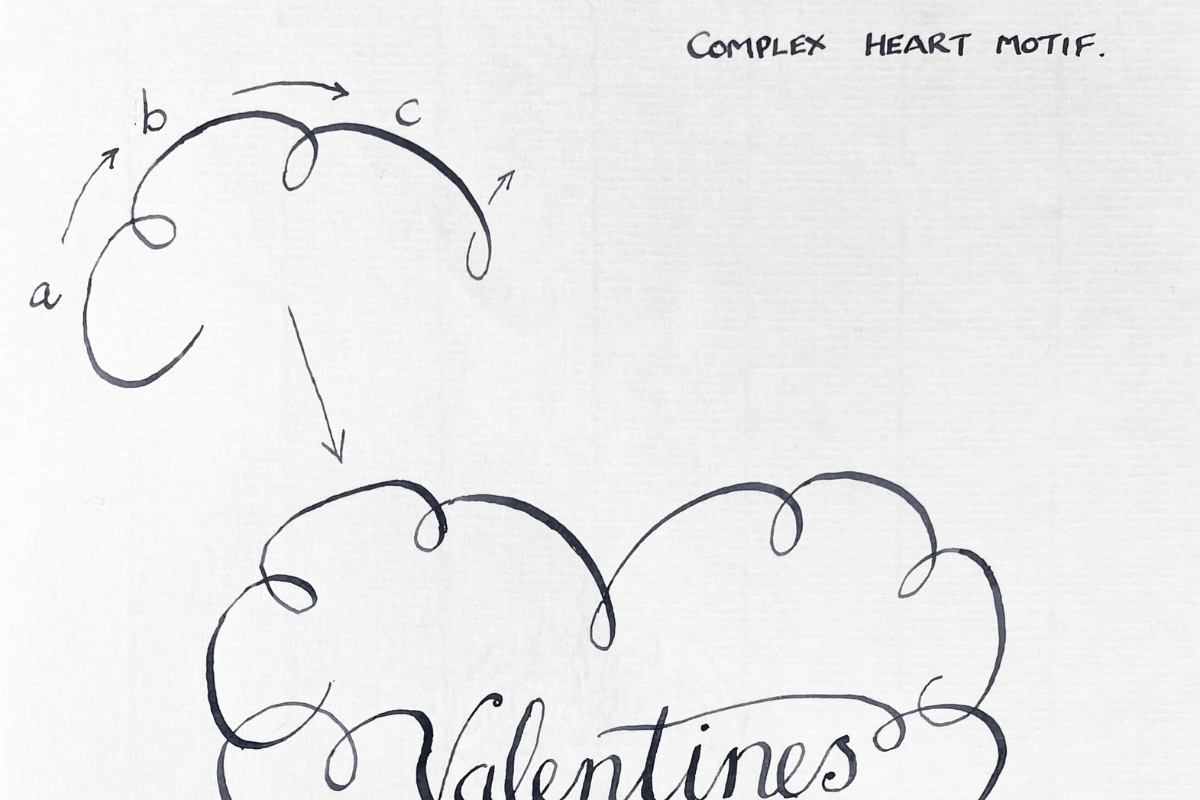 COMPLEX HEART MOTIF.
b
c
a
Valentines